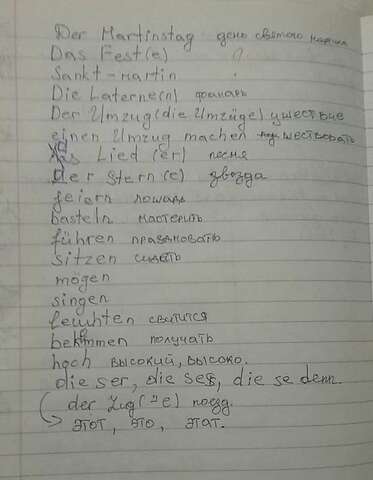 Der Martinstag день святого мартина
Das Fest(e)
Sankt-martin
Die Laterne(n) фонарь
Der Umzug(die Umzüge)
einen Umzug machen шествовать
das Lied (er) песня
der Stern(e) звезда
feiern лошадь
basteln мастерить
führen праздновать
sitzen сидеть
mögen
singen
leuchten свитится
bekommen получать
hoch высокий, высоко.
die ser, die ses, die se denn.
der Zug(¨e) поезд.
этот, это, этат.